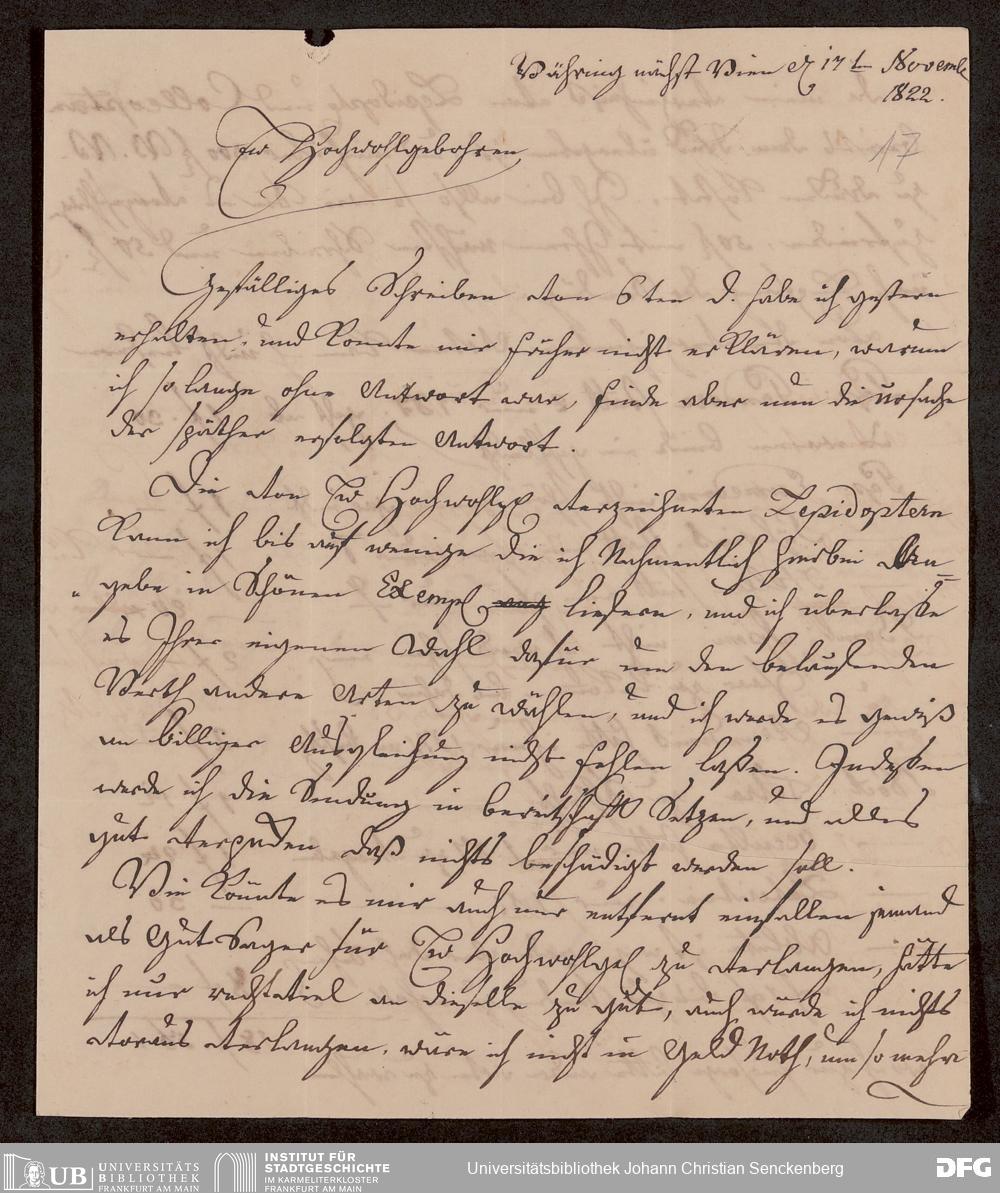 Währing nächst Wien d 17t Novemb
1822.
17
Ew Hochwohlgebohren
Gefälliges Schreiben von 6ten d. habe ich gestern
erhalten, und konnte mir früher nicht erklären, warum
ich so lange ohne Antwort war, finde aber nun die ursache
der späther erfolgten Antwort.
Die von Ew Hochwohlg verzeichneten Lepidoptern
kann ich bis auf wenige die ich Nahmentlich hierbei An=
"gebe in Schönen Exempl liefern, und ich überlaße
es Ihrer eigenen Wahl dafür um den belaufenden
Werth andere Arten zu wählen, und ich werde es gewiß
an billiger Ausgleichung nicht fehlen laßen. Indeßen
werde ich die Sendung in bereitschaft Setzen, und alles
gut verpaken daß nichts beschädigt werden soll.
Wie könnte es mir auch nur entfernt einfallen jemand
als Gut Sager für Ew Hochwohlgeb zu verlangen, hätte
ich nur recht viel an dieselbe zu gut, auch würde ich nichts
voraus verlangen, wäre ich nicht in Geld Noth, um so mehr
UB UNIVERSITÄTS
BIBLIOTHEK
FRANKFURT AM MAIN
INSTITUT FÜR
STADTGESCHICHTE
IM KARMELITERKLOSTER
FRANKFURT AM MAIN
Universitätsbibliothek Johann Christian Senckenberg
DFG